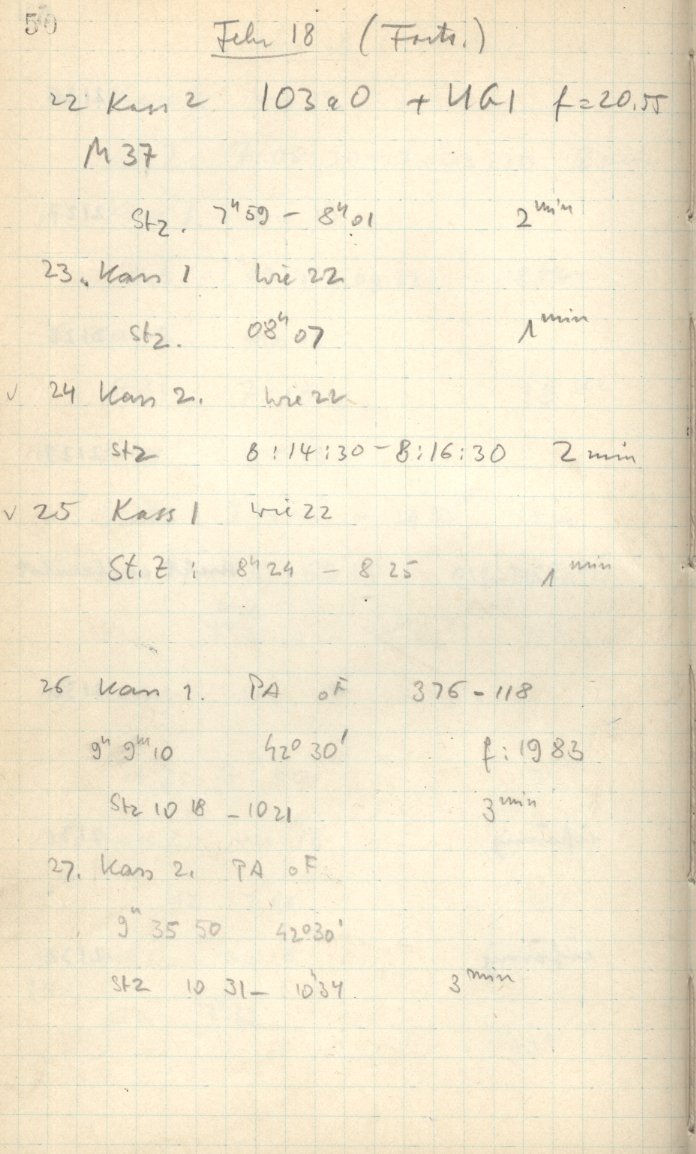 50
Febr 18 (Forts.)
22 Kass 2 103a0 + UG1 f=20.55
M 37
Stz. 7h59 – 8h01 2min
23. Kass 1 wie 22
Stz. 08h07 1min
√ 24 Kass 2. wie 22
Stz 8:14:30 – 8:16:30 2 min
√ 25 Kass 1 wie 22
St. Z : 8h24 – 8 25 1 min
26 Kass 1. PA oF 376 – 118
9h 9m10 42°30' f: 19 83
Stz 10 18 – 10 21 3min
27. Kass 2. PA oF
9h 35 50 42°30'
Stz 10 31 – 10h34 3min